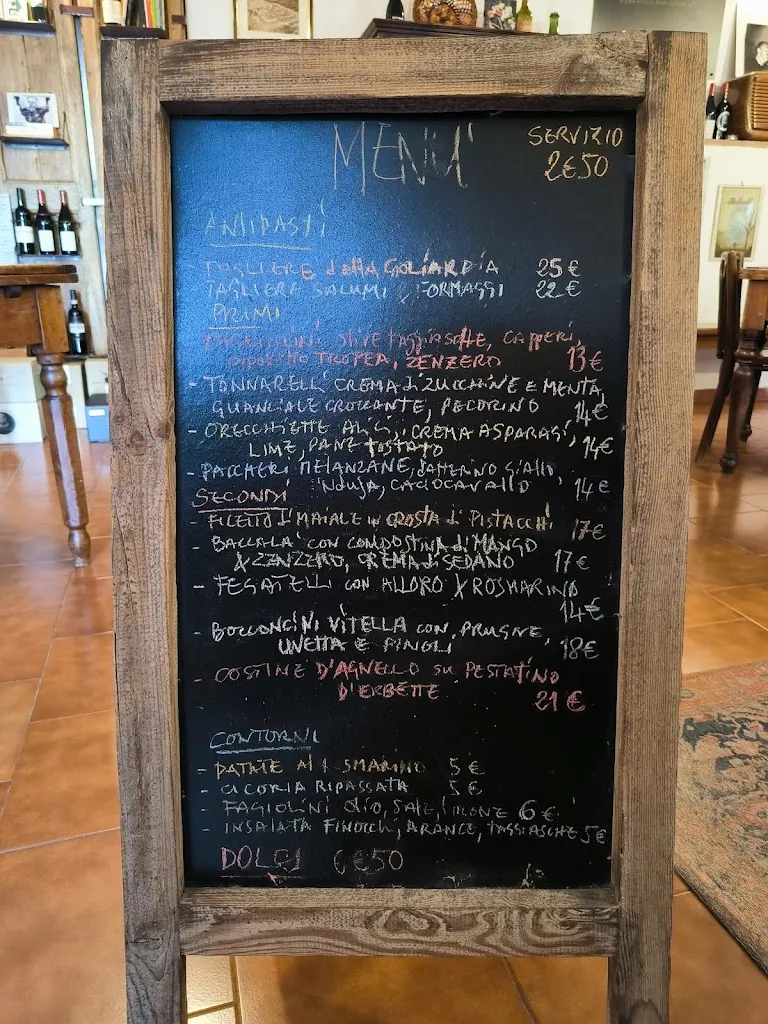 MENU'
SERVIZIO
2€50
ANTIPASTI
TAGLIERE della GOLIARDIA 25€
TAGLIERE SALUMI E FORMAGGI 22€
PRIMI
olive taggiasche, capperi,
TROPEA, ZENZERO 13€
- TONNARELLI CREMA di ZUCCHINE E MENTA,
GUANCIALE CROCCANTE, PECORINO 14€
- ORECCHIETTE CREMA ASPARAGI,
LIME, PANE TOSTATO 14€
- PACCHERI MELANZANE, DATTERINO GIALLO
'NDUJA, CACIOCAVALLO 14€
SECONDI
- FILETTO di MAIALE in CROSTA di PISTACCHI 17€
- BACCALA' CON COMPOSTINA di MANGO
& ZENZERO, CREMA di SEDANO 17€
- FEGATELLI con ALLORO & ROSMARINO
14€
- BOCCONCINI VITELLA CON PRUGNE,
UVETTA E PINOLI 18€
- COSTINE D'AGNELLO su PESTATINO
D'ERBETTE 21€
CONTORNI
- PATATE AL ROSMARINO 5€
- CICORIA RIPASSATA 5€
- FAGIOLINI olio, SALE, LIMONE 6€
- INSALATA FINOCCHI, ARANCE, TAGGIASCHE 5€
DOLCI 6€50